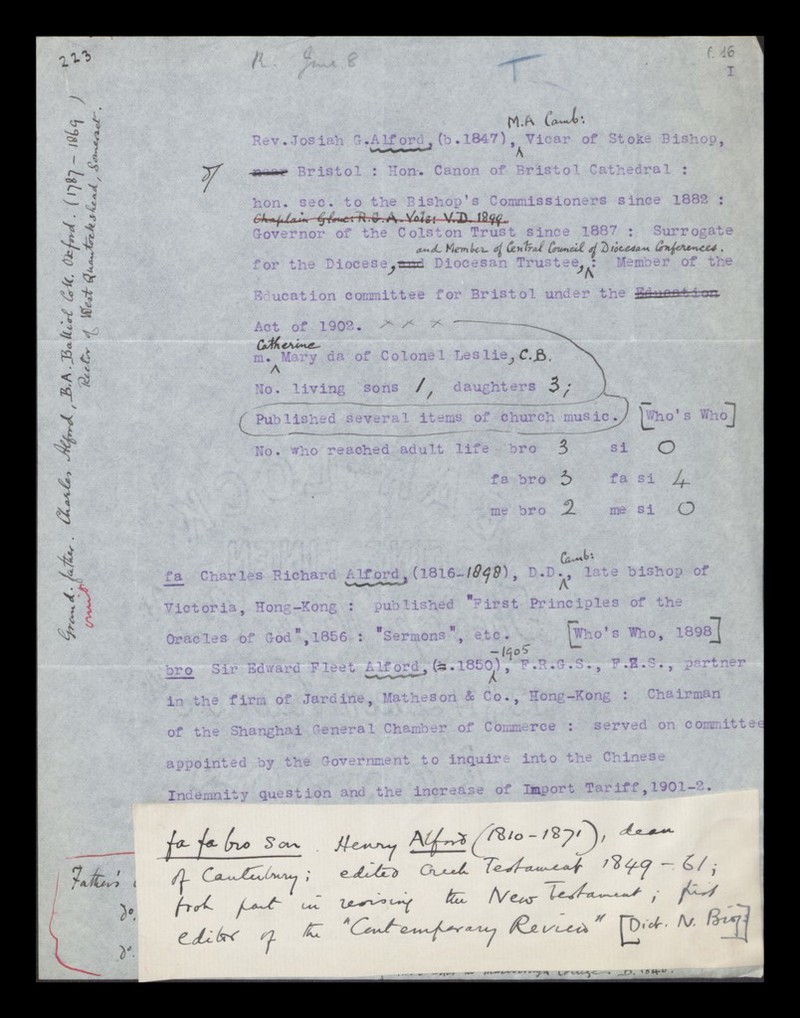 223
R. June 8
T
f. 16
I
Grandfather. Charles Alford, B.A. Balliol Coll. Oxford. (1787 – 1869)
Rector of West Quantoxhead, Somerset.
omit
M.A Camb:
Rev.Josiah G.Alford,(b.1847), Vicar of Stoke Bishop,
near Bristol : Hon. Canon of Bristol Cathedral :
of
hon. sec. to the Bishop's Commissioners since 1882 :
Chaplain Glouc: R.G.A. Vols: V.D. 1899.
Governor of the Colston Trust since 1887 : Surrogate
and Member of Central Council of Diocesan Conferences.
for the Diocese, and Diocesan Trustee, : Member of the
Education committee for Bristol under the Education
Act of 1902. x x x
Catherine
m. Mary da of Colonel Leslie, C.B.
No. living sons 1, daughters 3;
Published several items of church music. [Who's Who]
No. who reached adult life bro 3 si 0
fa bro 3 fa si 4
me bro 2 me si 0
Camb:
fa Charles Richard Alford,(1816-1898), D.D., late bishop of
Victoria, Hong-Kong : published "First Principles of the
Oracles of God",1856 : "Sermons", etc. [Who's Who, 1898]
-1905
bro Sir Edward Fleet Alford,(.1850), F.R.G.S., F.Z.S., partner
in the firm of Jardine, Matheson & Co., Hong-Kong : Chairman
of the Shanghai General Chamber of Commerce : served on committee
appointed by the Government to inquire into the Chinese
Indemnity question and the increase of Import Tariff,1901-2.
fa fa bro son. Henry Alford (1810-1871), dean
of Canterbury; edited Greek Testament 1849 – 61;
took part in revising the New Testament; first
editor of the "Contemporary Review" [Dict. N. Biog:]
Father's
do.
do.
College. B. 1840.